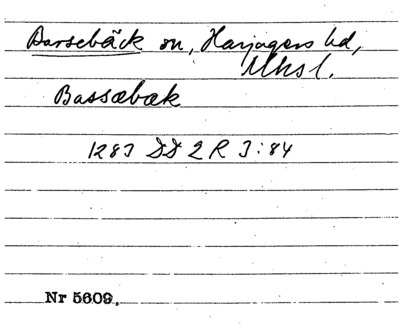 Barsebäck sn, Harjagers hd,
Mhsl.
Bassæbæk
1283 DD 2 R 3:84
Nr 5609.